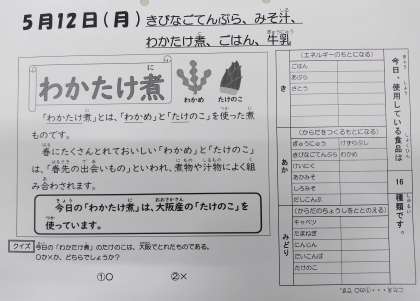 5月12日(月) きびなごてんぷら、みそ汁、
わかたけ煮、ごはん、牛乳
わかたけ煮
わかめ たけのこ
「わかたけ煮」とは、「わかめ」と「たけのこ」を使った煮
ものです。
春にたくさんとれておいしい「わかめ」と「たけのこ」
は、「春先の出会いもの」といわれ、煮物や汁物によく組
み合わされます。
今日の「わかたけ煮」は、大阪産の「たけのこ」を
使っています。
クイズ 今日の「わかたけ煮」のたけのこは、大阪でとれたものである。
○か×か、どちらでしょうか?
①○ ②×
き
(エネルギーのもとになる)
ごはん
あぶら
さとう
あか
(からだをつくるもとになる)
ぎゅうにゅう けずりぶし
きびなごてんぷら わかめ
けいにく
あかみそ
しろみそ
だしこんぶ
みどり
(からだのちょうしをととのえる)
キャベツ
たまねぎ
にんじん
だいこんば
たけのこ
今日、使用している食品は
16
種類です。
こたえ・・・①の○ です。